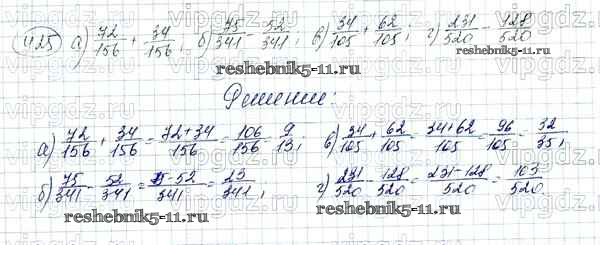 425 а) 72/156 + 34/156; б) 75/341 - 52/341; в) 34/105 + 62/105; г) 231/520 - 128/520
reshebnik5-11.ru
Решение:
а) 72/156 + 34/156 = 72+34/156 = 106/156 9/13; в) 34/105 + 62/105 = 34+62/105 = 96/105 = 32/35;
б) 75/341 - 52/341 = 75-52/341 = 23/341; г) 231/520 - 128/520 = 231-128/520 = 103/520
reshebnik5-11.ru reshebnik5-11.ru
vipgdz.ru